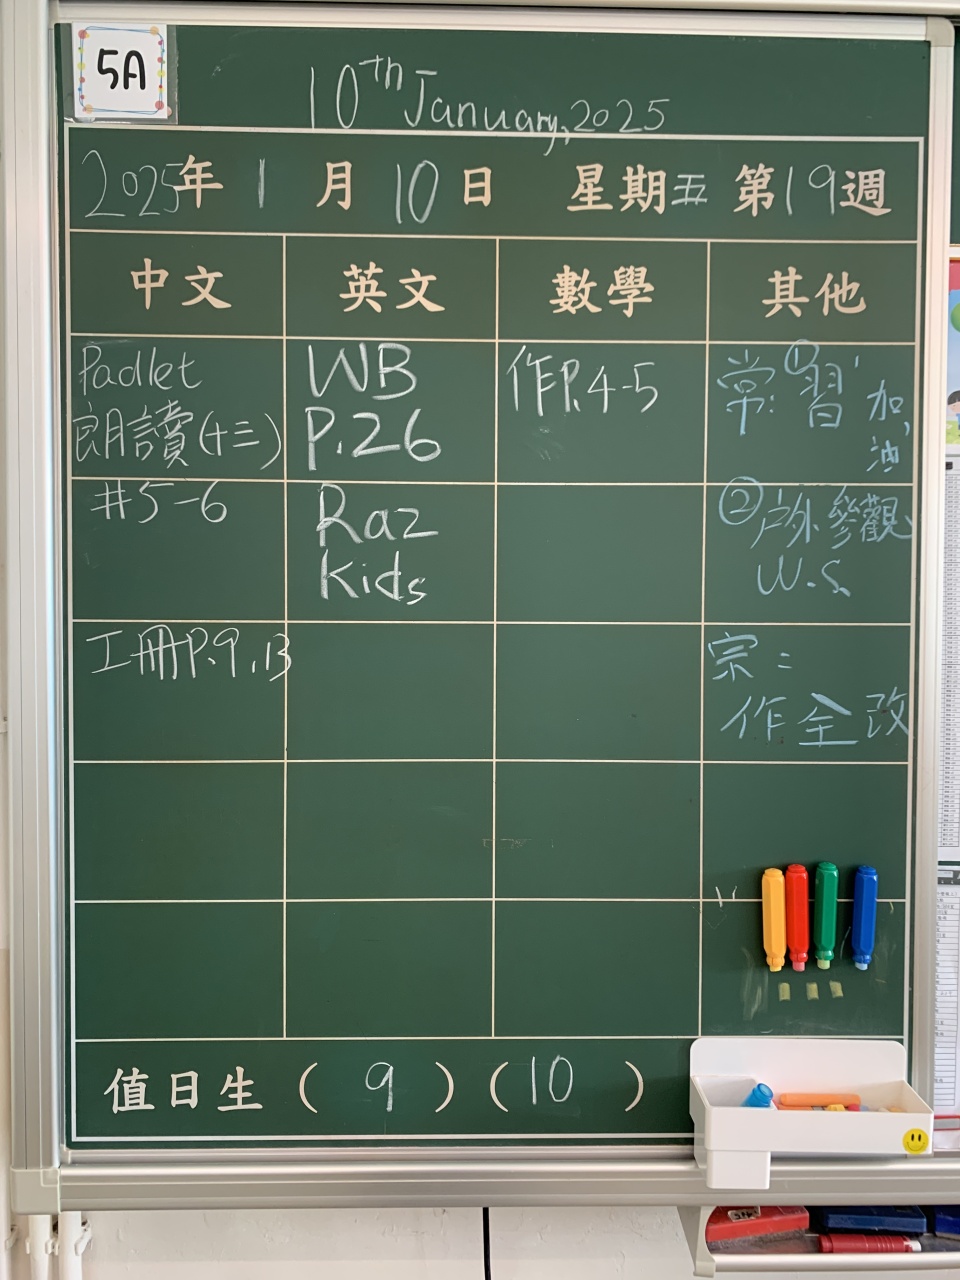 5A
10th January, 2025
2025年 1 月 10 日 星期五 第19週
中文 英文 數學 其他
Padlet
朗讀(十三)
WB
P.26
作P.4-5
常: ①習
加油
#5-6
Raz
Kids
②戶外參觀
W.S.
工冊P.9,13
宗:
作全改
值日生 ( 9 ) ( 10 )